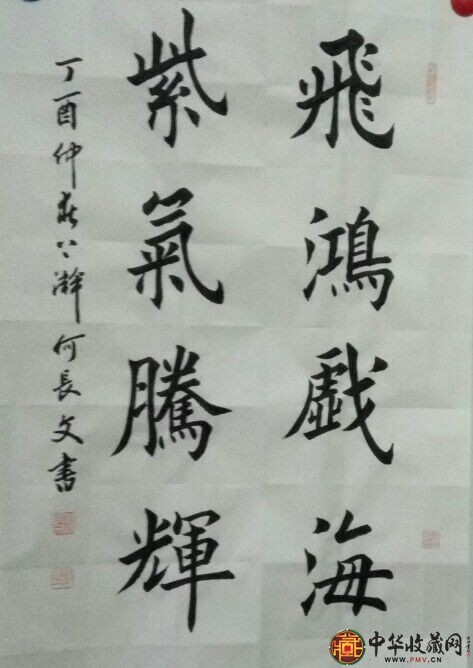 飛鴻戲海
紫氣騰輝
丁酉仲春上澣何長文書
中华收藏网
www.PMV.cn